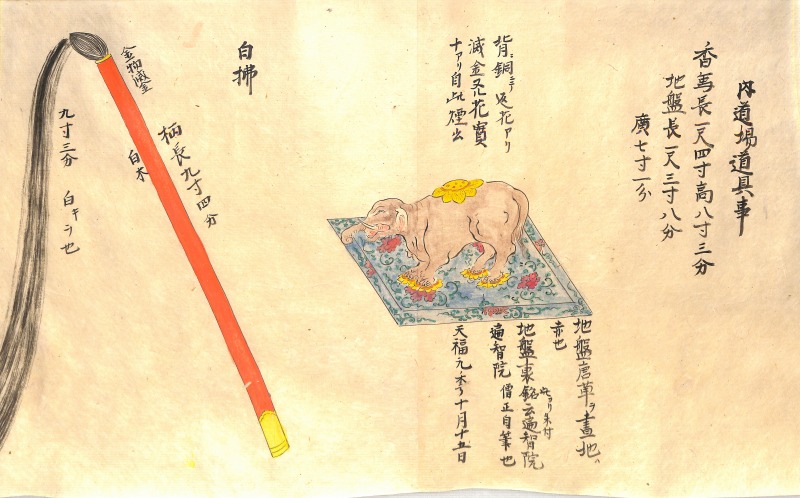 内道場道具事
香象長一尺四寸高八寸三分
地盤長一尺三寸八分
廣七寸一分
背ニ銅ニテ返花アリ
滅金又花實
十アリ自此煙出
地盤唐草ヲ畫地ハ
赤也
地盤裏銘云遍智院
遍智院僧正自筆也
天福元年十月十五日
白拂
金物滅金
柄長九寸四分
白木
九寸三分 白キヲ也